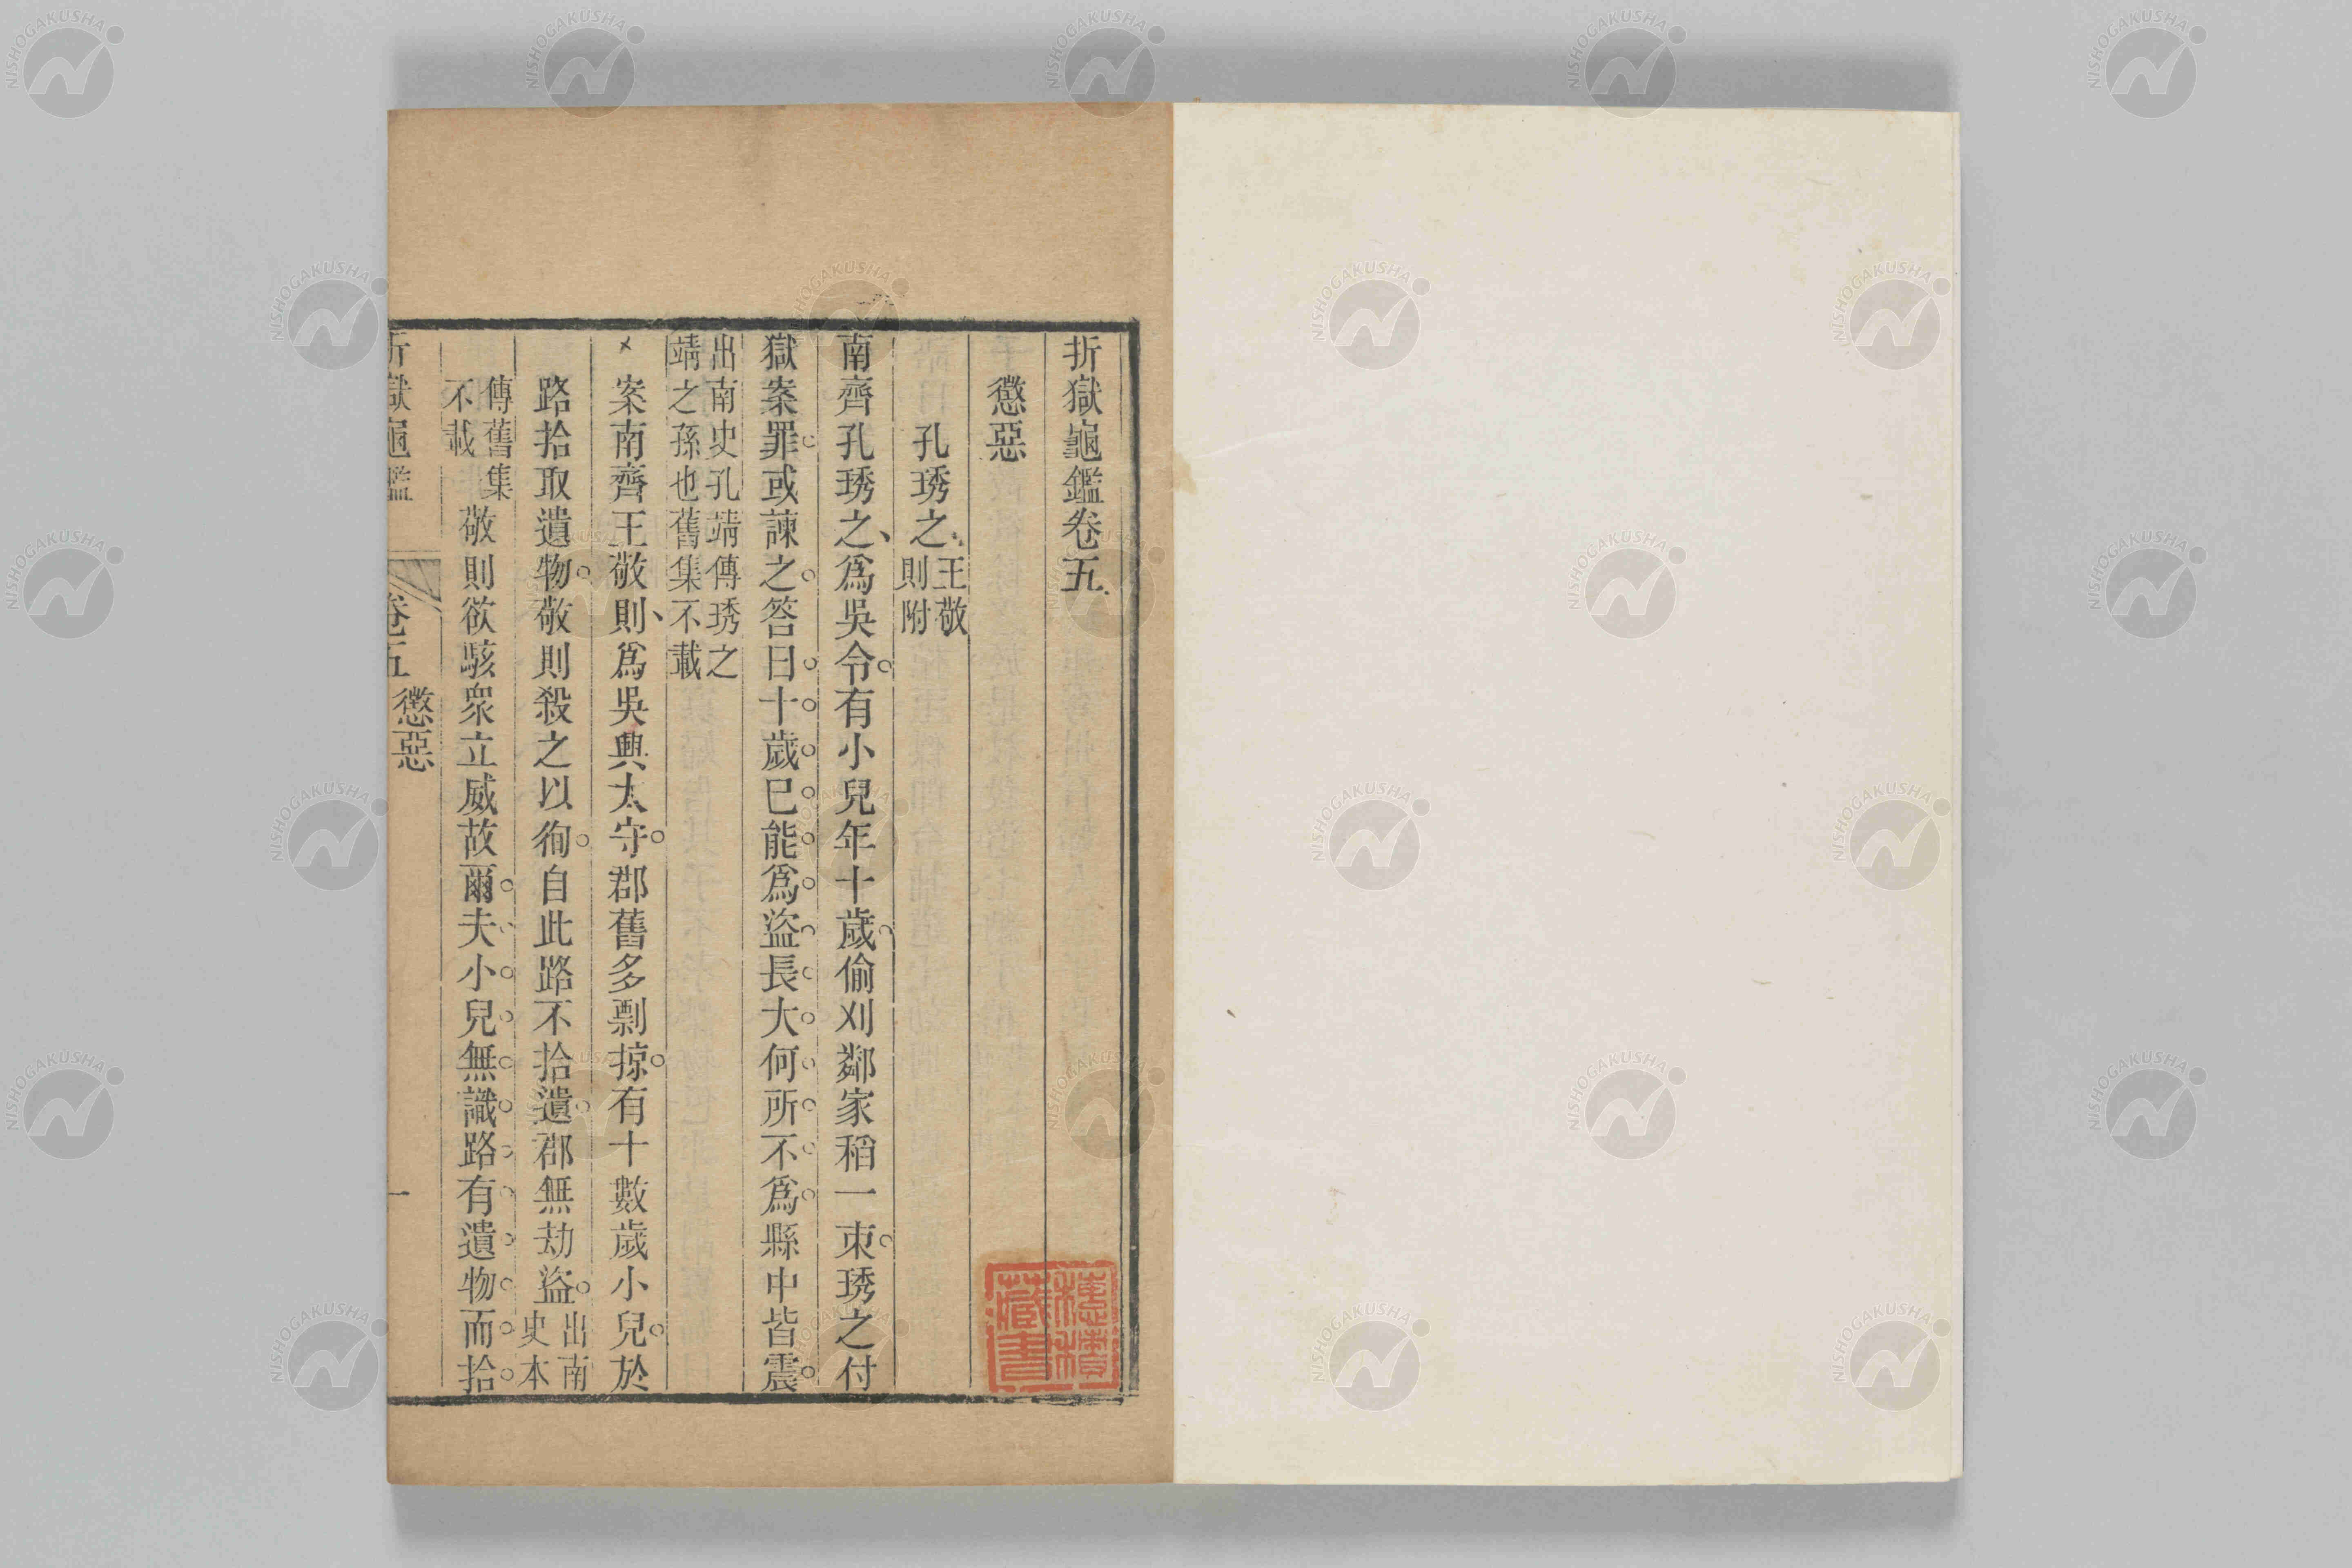 折獄龜鑑卷五
懲惡
孔琇之王敬則附
南齊孔琇之爲吳令有小兒年十歲偷刈鄰家稻一束琇之付
獄案罪或諫之答曰十歲已能爲盜長大何所不爲縣中皆震
出南史孔靖傳琇之
靖之孫也舊集不載
案南齊王敬則爲吳興太守郡舊多剽掠有十數歲小兒於
路拾取遺物敬則殺之以徇自此路不拾遺郡無劫盜出南史本
傳舊集不載敬則欲駭衆立威故爾夫小兒無識路有遺物而拾
折獄龜鑑 卷五 懲惡 一
藏書
NISHOGAKUSHA